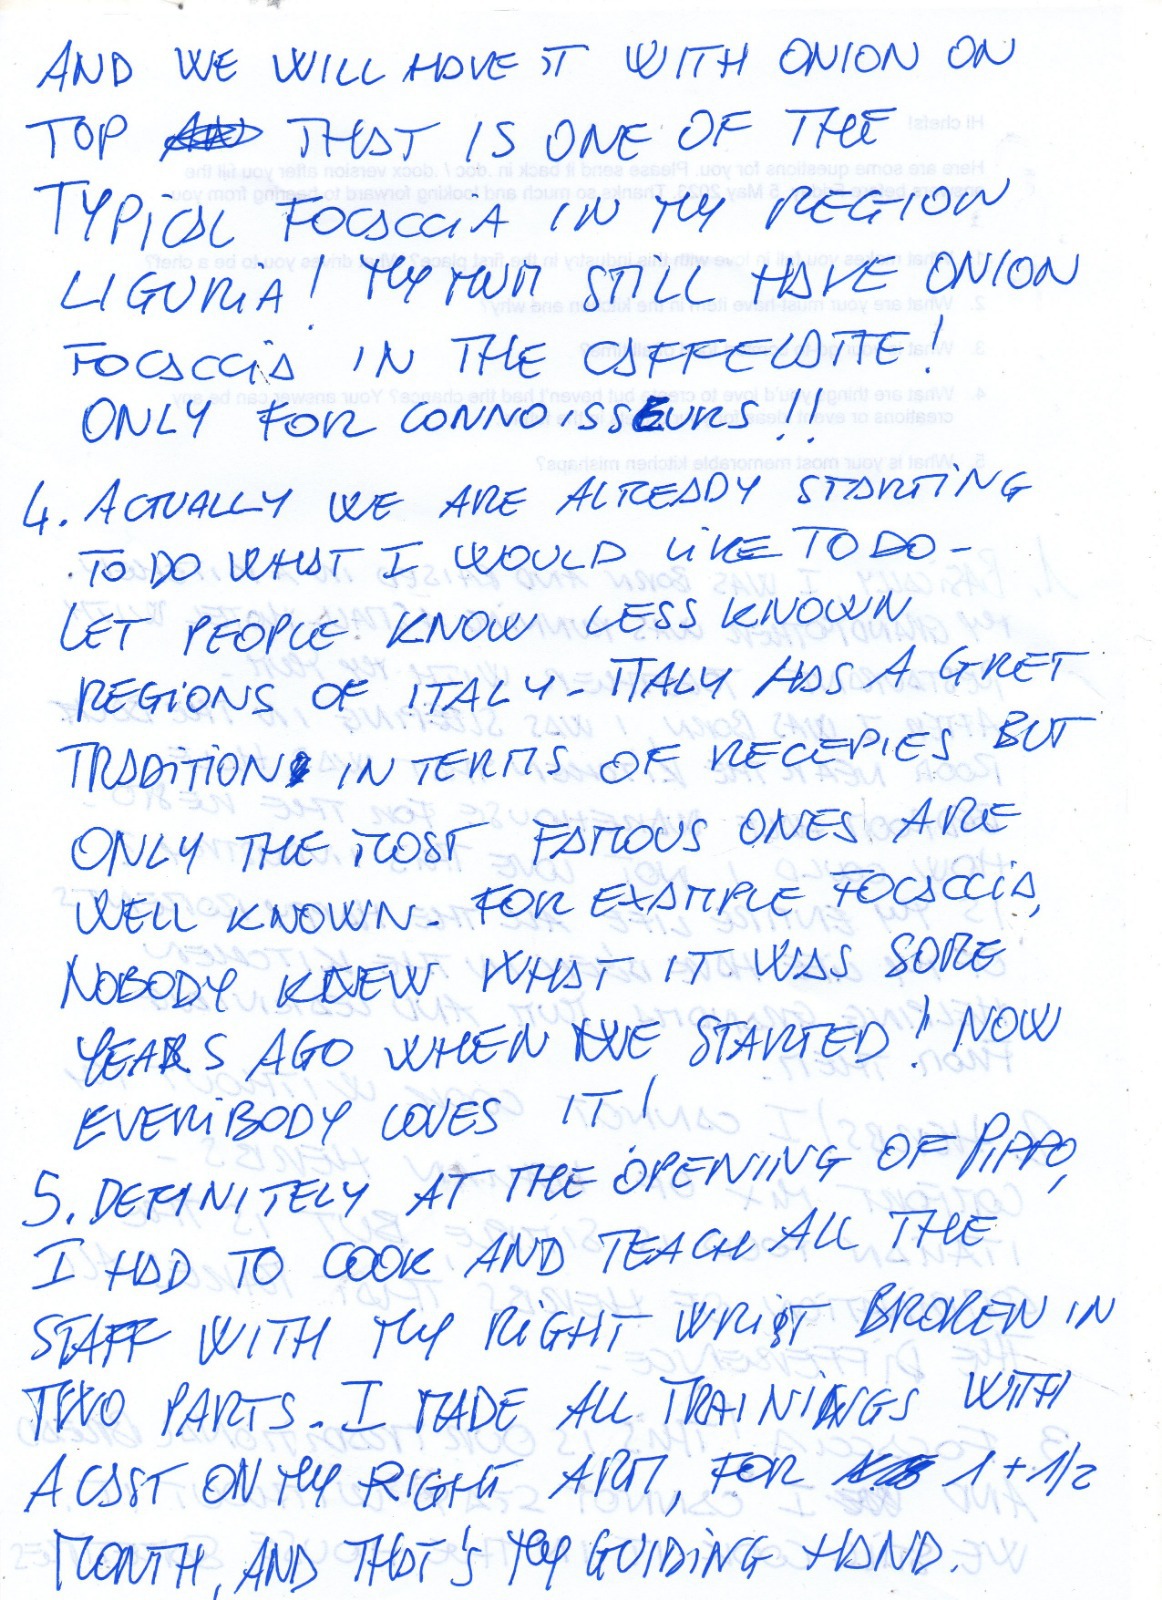 AND WE WILL HAVE IT WITH ONION ON
TOP THAT IS ONE OF THE
TYPICAL FOCACCIA IN MY REGION
LIGURIA! MY MUM STILL HAVE ONION
FOCACCIA IN THE CAFFELATTE!
ONLY FOR CONNOISSEURS!!
4. ACTUALLY WE ARE ALREADY STARTING
TO DO WHAT I WOULD LIKE TO DO -
LET PEOPLE KNOW LESS KNOWN
REGIONS OF ITALY - ITALY HAS A GRET
TRADITION IN TERMS OF RECEPIES BUT
ONLY THE MOST FAMOUS ONES ARE
WELL KNOWN - FOR EXAMPLE FOCACCIA,
NOBODY KNEW WHAT IT WAS SOME
YEARS AGO WHEN WE STARTED! NOW
EVERIBODY LOVES IT!
5. DEFINITELY AT THE OPENING OF PIPPO,
I HAD TO COOK AND TEACH ALL THE
STAFF WITH MY RIGHT WRIST BROKEN IN
TWO PARTS - I MADE ALL TRAININGS WITH
A CAST ON MY RIGHT ARM, FOR 1 + 1/2
MONTH, AND THAT'S MY GUIDING HAND.